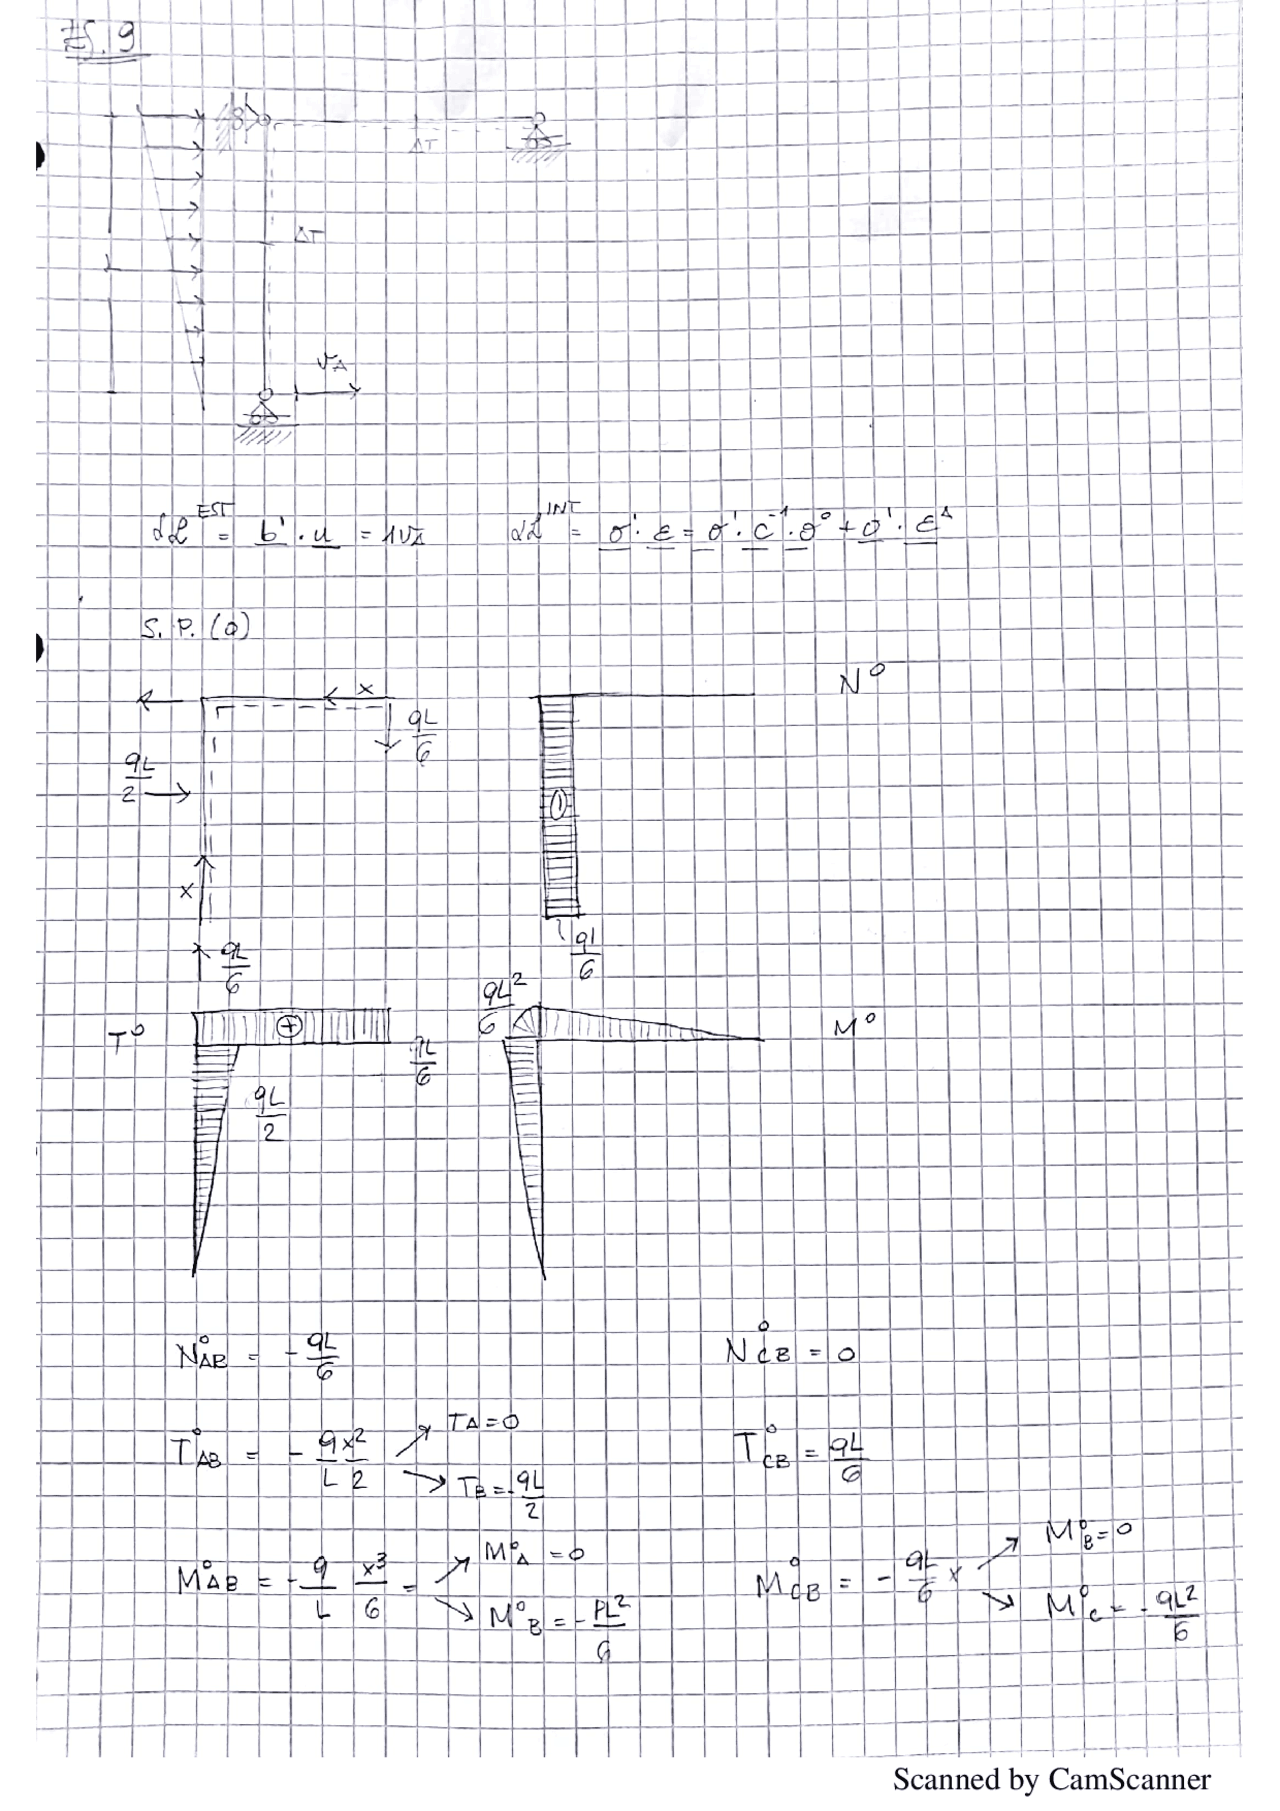 ES. 9
ΔT
ΔT
vA
dL^EST = b' · u = 1vA    dL^INT = σ' · ε = σ' · C^-1 · σ° + σ' · ε^Δ
S.P. (0)
x
qL/6
N°
qL/2
x
qL/6
qL/6
T°
+
qL/6
qL/2
qL²/6
M°
N°AB = - qL/6    N°CB = 0
T°AB = - q/L x²/2    TA = 0    TB = - qL/2    T°CB = qL/6
M°AB = - q/L x³/6 =    M°A = 0    M°B = - PL²/6    M°CB = - qL/6 x    M°B = 0    M°C = - qL²/6
Scanned by CamScanner